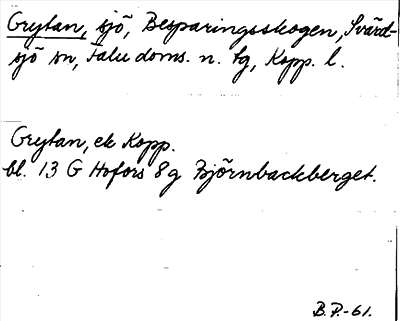 Grytan, sjö, Besparingsskogen, Svärd-
sjö sn, Falu doms. n. tg, Kopp. l.
Grytan, ek Kopp.
bl. 13 G Hofors 8 g Björnbackberget.
B.P.-61.